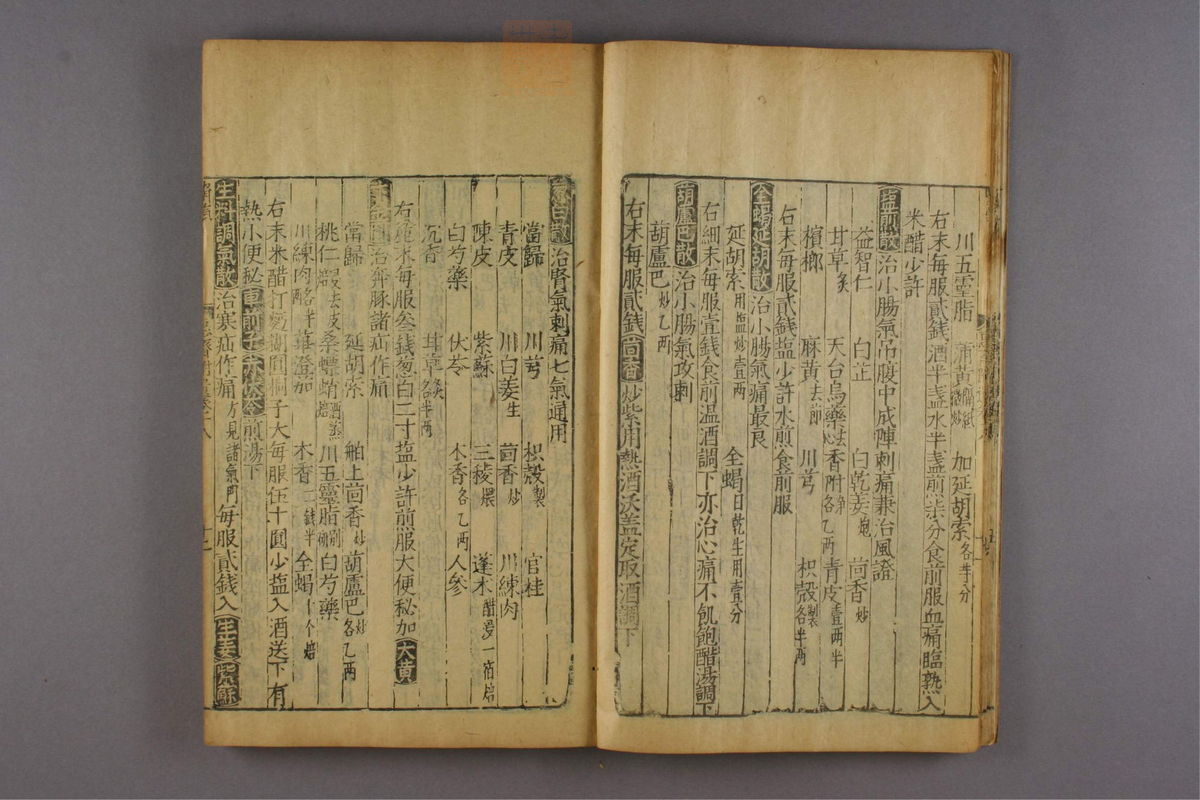 川五靈脂 蒲黃 加延胡索各半分
右末每服貳錢酒半盞水半盞煎柒分食前服血痛臨熟入
米醋少許
塩煎散 治小腸氣吊腹中成陣刺痛兼治風證
益智仁 白芷 白乾姜炮 茴香炒
甘草炙 天台烏藥去心 香附淨各乙兩 青皮壹兩半
檳榔 麻黃去節 川芎 枳殼製各半兩
右末每服貳錢塩少許水煎食前服
全蝎延胡散 治小腸氣痛最良
延胡索用塩炒壹兩 全蝎日乾生用壹分
右細末每服壹錢食前温酒調下亦治心痛不飢飽醋湯調下
胡盧巴散 治小腸氣攻刺
葫盧巴炒乙兩
右末每服貳錢茴香炒紫用熱酒沃蓋定取酒調下
葱白散 治腎氣刺痛七氣通用
當歸 川芎 枳殼製 官桂
青皮 川白姜生 茴香炒 川練肉
陳皮 紫蘇 三稜煨 蓬术醋浸一宿焙
白芍藥 伏苓 木香各乙兩 人參
沉香 甘草炙各半兩
右末每服叁錢葱白二寸塩少許煎服大便秘加大黃
治奔豚諸疝作痛
當歸 延胡索 舶上茴香炒 葫盧巴炒各乙兩
桃仁去皮 桑螵蛸酒蒸焙 川五靈脂別研 白芍藥
川練肉酪半 蓽澄加 木香一錢半 全蝎十个焙
右末米醋打麪糊圓桐子大每服伍十圓少塩入酒送下有
熱小便秘車前子赤伏苓煎湯下
生料調氣散 治寒疝作痛方見諸氣門每服貳錢入生姜紫蘇